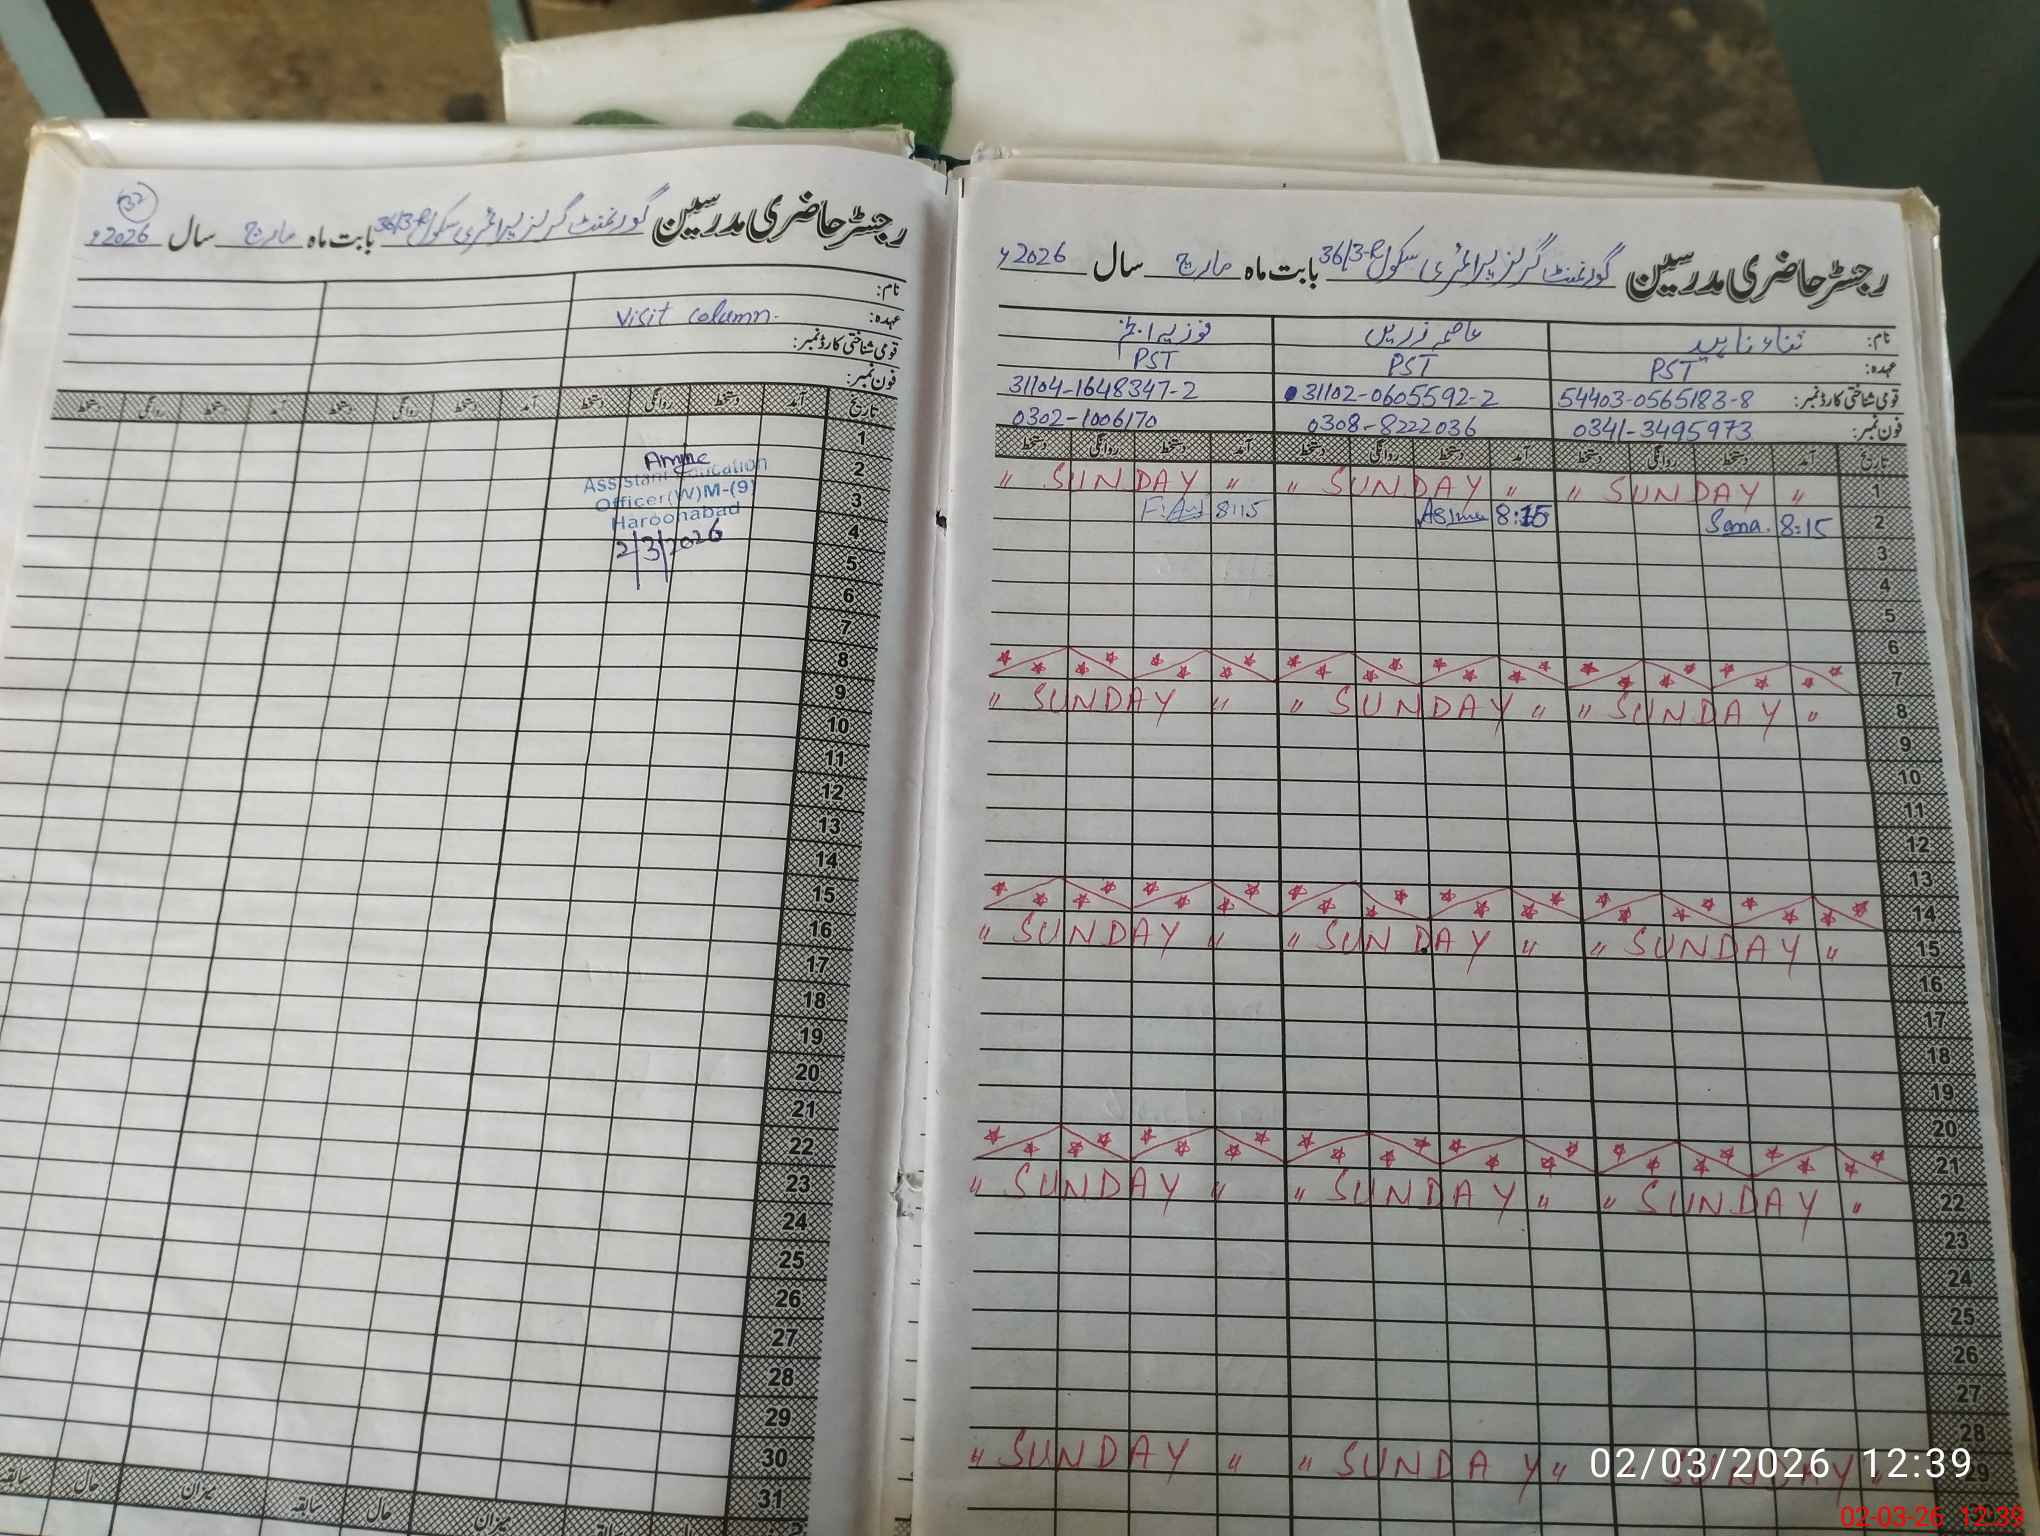 رجسٹر حاضری مدرسین گورنمنٹ گرلز پرائمری سکول 36/3-R بابت ماہ مارچ سال 2026ء
32
نام:
عہدہ: Visit column.
قومی شناختی کارڈ نمبر:
فون نمبر:
تاریخ آمد دستخط روانگی دستخط آمد دستخط روانگی دستخط آمد دستخط روانگی دستخط
1
2
Assistant Education
3
Officer(W)M-(9)
Haroonabad
4
2/3/2026
5
6
7
8
9
10
11
12
13
14
15
16
17
18
19
20
21
22
23
24
25
26
27
28
29
30
31
میزان سابقہ حال میزان سابقہ حال سابقہ
رجسٹر حاضری مدرسین گورنمنٹ گرلز پرائمری سکول 36/3-R بابت ماہ مارچ سال 2026ء
نام: ثناء ناہید عاصمہ زریں فوزیہ انجم
عہدہ: PST PST PST
قومی شناختی کارڈ نمبر: 54403-0565183-8 31102-0605592-2 31104-1648347-2
فون نمبر: 0341-3495973 0308-8222036 0302-1006170
تاریخ آمد دستخط روانگی دستخط آمد دستخط روانگی دستخط آمد دستخط روانگی دستخط
1 " SUNDAY " " SUNDAY " " SUNDAY "
2 8:15 Sana. 8:15 Asima 8:15
3
4
5
6
7
8 " SUNDAY " " SUNDAY " " SUNDAY "
9
10
11
12
13
14
15 " SUNDAY " " SUNDAY " " SUNDAY "
16
17
18
19
20
21
22 " SUNDAY " " SUNDAY " " SUNDAY "
23
24
25
26
27
28
29 " SUNDAY " " SUNDAY " SUNDAY "
02/03/2026 12:39
02-03-26 12:39